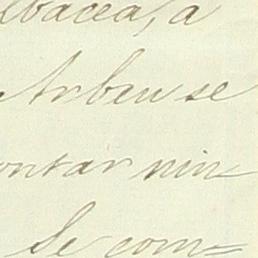 lbacea, a
Arbeu se
ontar nin-
Se com=